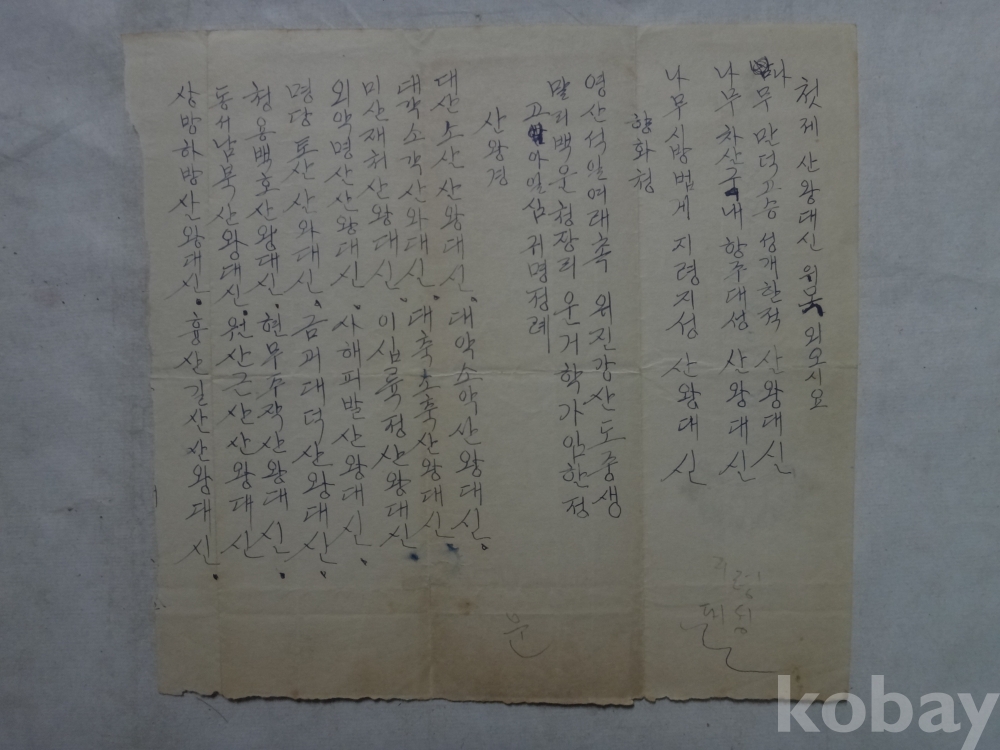 첫제 산왕대신 원못 외오시요
나무 만덕고승 성개한적 산왕대신
나무 차산국내 항주대성 산왕대신
나무시방법게 지령지성 산왕대신
향화청
영산석일여래촉 위진강산도중생
말리백운청장리 운거학가임한정
고아일심 귀명정례
산왕경
대산소산 산왕대신. 대악소악산왕대신.
대각소각산와대신. 대축소축산왕대신.
미산재처산왕대신. 이십륙정산왕대신.
외악명산산왕대신. 사해피발산왕대신.
명당토산 산와대신. 금괴대덕산왕대신.
청용백호산왕대신. 현무주작산왕대신.
동서남북산왕대신. 원산근산산왕대신
상방하방산왕대신. 흉산길산산왕대신.
운
kobay